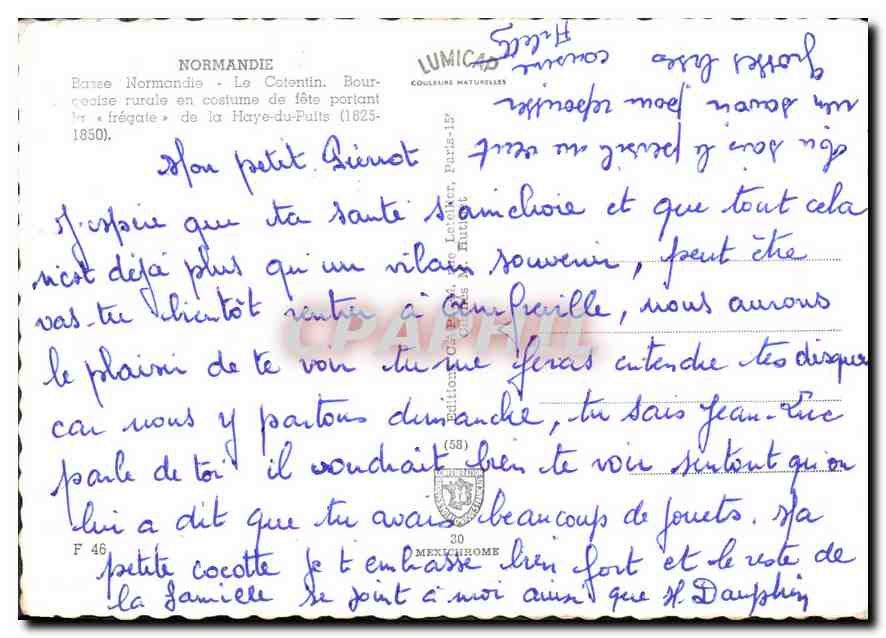 NORMANDIE
Basse Normandie - Le Cotentin. Bour-
geoise rurale en costume de fête portant
la « frégate » de la Haye-du-Puits (1825-
1850).
LUMICAP
COULEURS NATURELLES
Mon petit Pierrot
J'espère que ta santé s'améliore et que tout cela
n'est déjà plus qu'un vilain souvenir, peut être
vas-tu bientôt rentrer à
nous aurons
le plaisir de te voir tu me feras entendre tes disques
car nous y partons dimanche, tu sais Jean-Luc
parle de toi il voudrait bien te voir surtout qu'on
lui a dit que tu avais beaucoup de jouets. Ma
petite cocotte je t'embrasse bien fort et le reste de
la famille se joint à moi ainsi que M. Dauphin
Tu sais le persil au vent
rien savoir pour repousser
grosses bises
cousine Arlette
Editions CAP
Letellier, Paris-15e
(58)
30
MEXICHROME
F 46
CPAPHIL